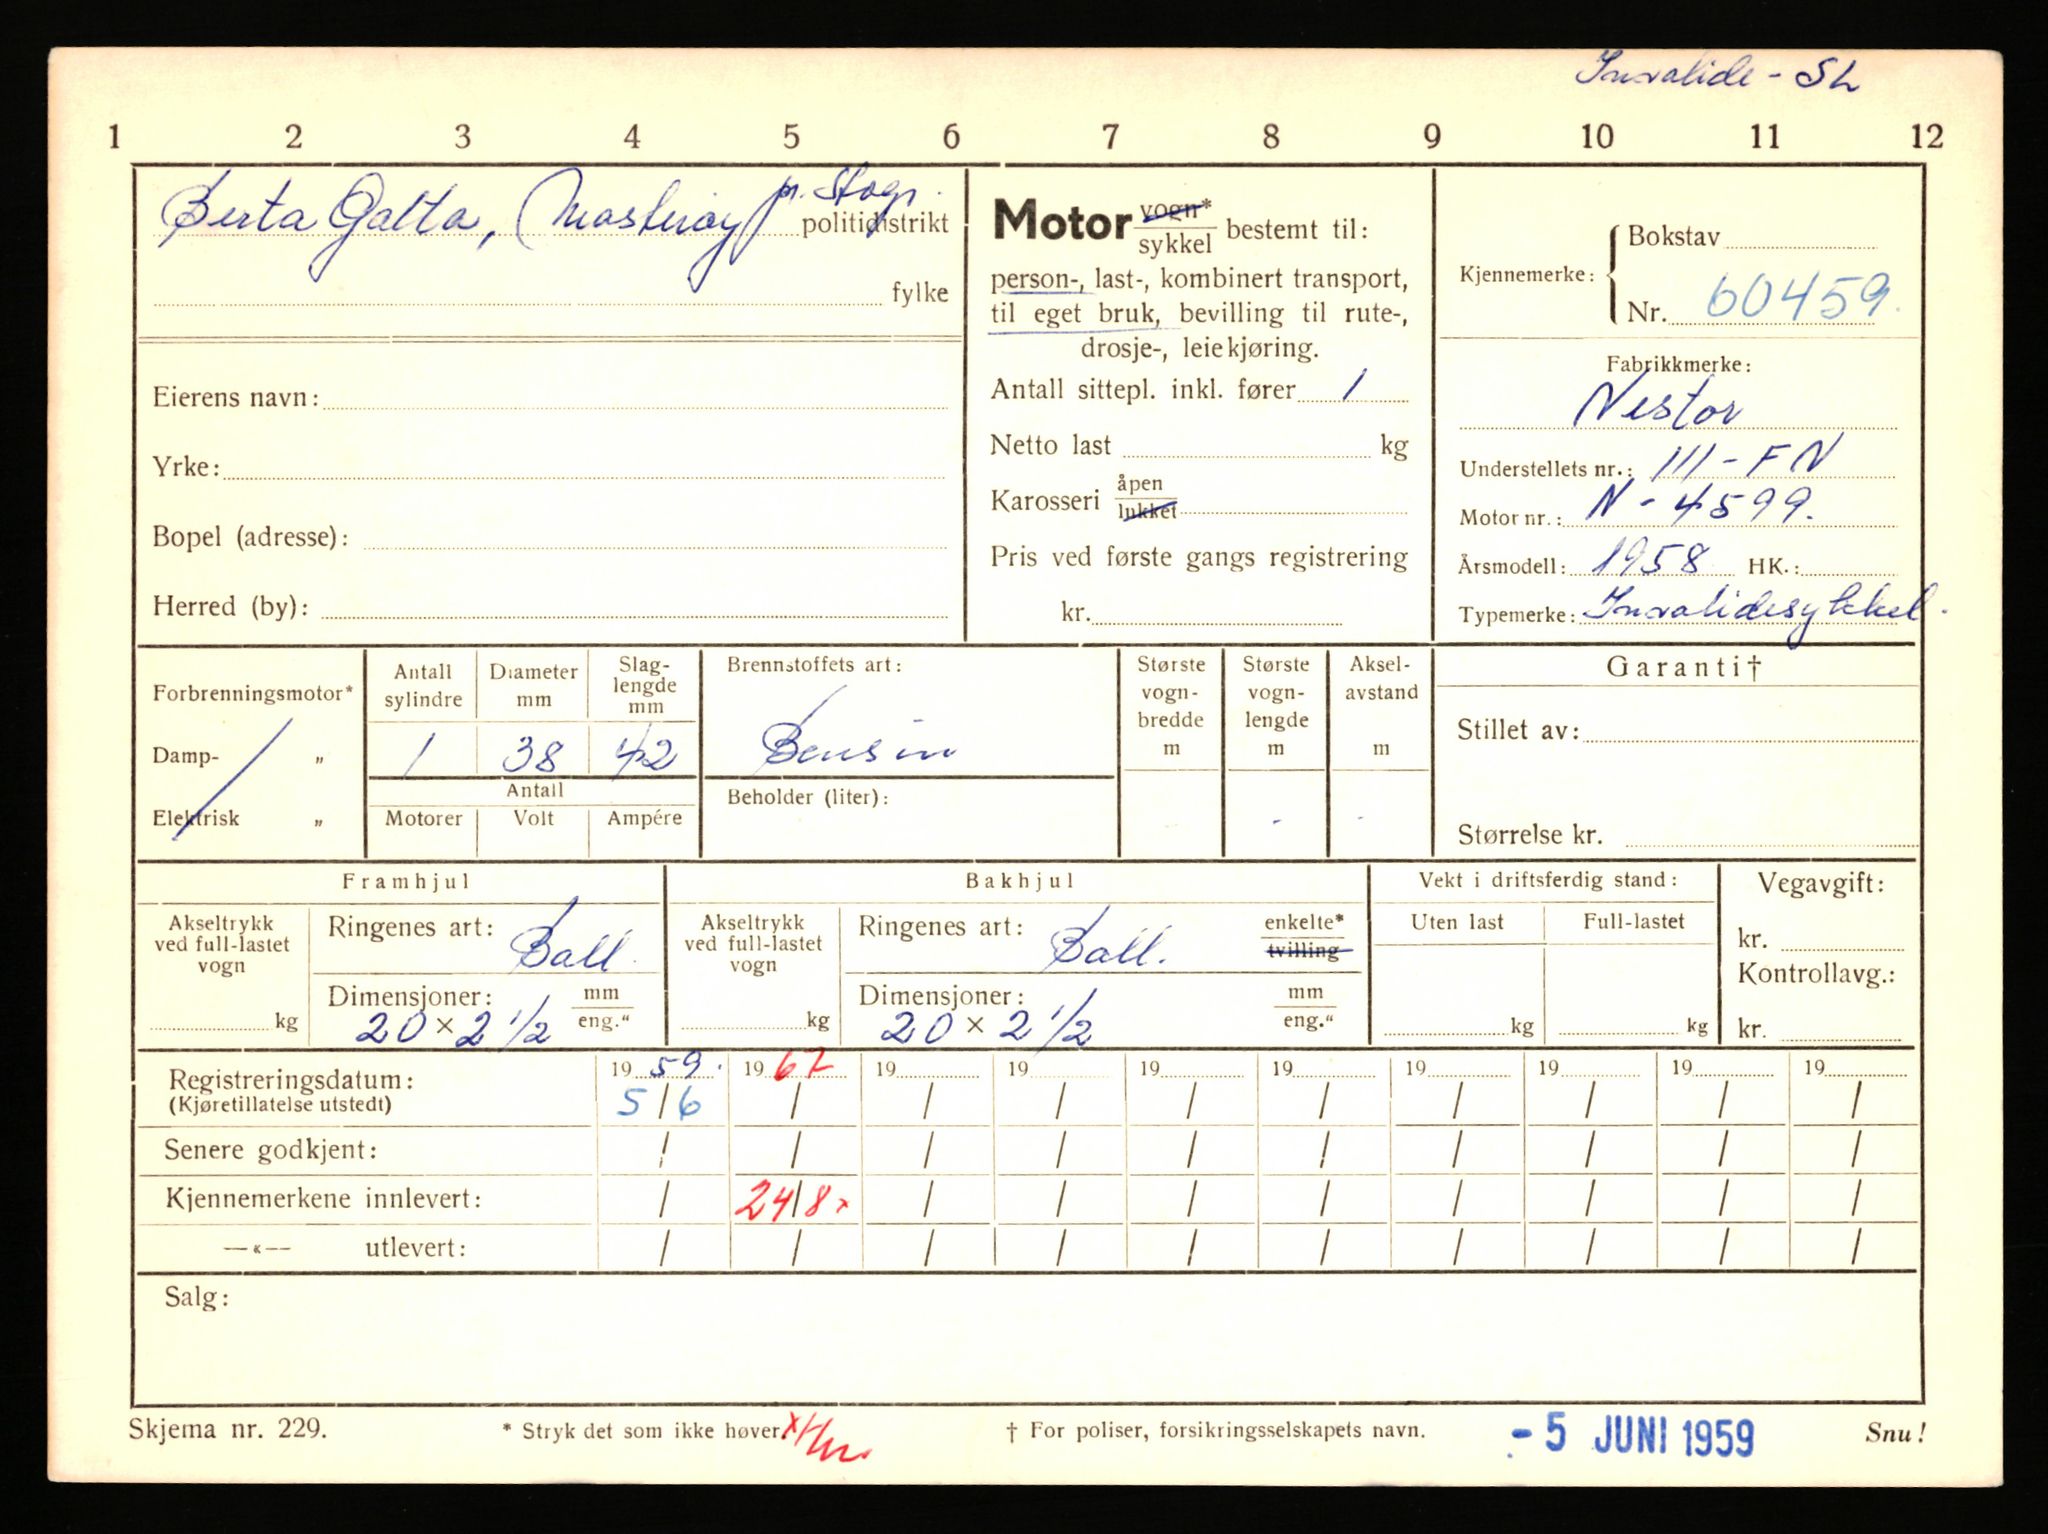 Invalide - SL
1 2 3 4 5 6 7 8 9 10 11 12
Berta Galta, Mosterøy pr. Stgr.
politidistrikt
fylke
Eierens navn:
Yrke:
Bopel (adresse):
Herred (by):
Motor vogn*
sykkel bestemt til:
person-, last-, kombinert transport,
til eget bruk, bevilling til rute-,
drosje-, leiekjøring.
Antall sittepl. inkl. fører 1
Netto last kg
Karosseri åpen
lukket
Pris ved første gangs registrering
kr.
Kjennemerke: Bokstav
Nr. 60459.
Fabrikkmerke:
Nestor
Understellets nr.: 111 - FN
Motor nr.: N - 4599.
Årsmodell: 1958 HK.:
Typemerke: Invalidesykkel.
Forbrenningsmotor*
Damp- „
Elektrisk „
Antall sylindre
Diameter mm
Slag-lengde mm
1 38 42
Antall
Motorer Volt Ampére
Brennstoffets art:
Bensin
Beholder (liter):
Største vogn-bredde m
Største vogn-lengde m
Aksel-avstand m
Garanti†
Stillet av:
Størrelse kr.
Framhjul
Akseltrykk ved full-lastet vogn
kg
Ringenes art: Ball.
Dimensjoner: mm
20 × 2 1/2 eng."
Bakhjul
Akseltrykk ved full-lastet vogn
kg
Ringenes art: Ball. enkelte*
tvilling
Dimensjoner: mm
20 × 2 1/2 eng."
Vekt i driftsferdig stand:
Uten last Full-lastet
kg kg
Vegavgift:
kr.
Kontrollavg.:
kr.
19 59. 19 67 19 19 19 19 19 19 19 19
Registreringsdatum: 5/6 / / / / / / / / /
(Kjøretillatelse utstedt)
Senere godkjent: / / / / / / / / / /
Kjennemerkene innlevert: / 24/8 x / / / / / / / /
—«— utlevert: / / / / / / / / / /
Salg:
Skjema nr. 229.
* Stryk det som ikke høver.
† For poliser, forsikringsselskapets navn.
- 5 JUNI 1959
Snu!